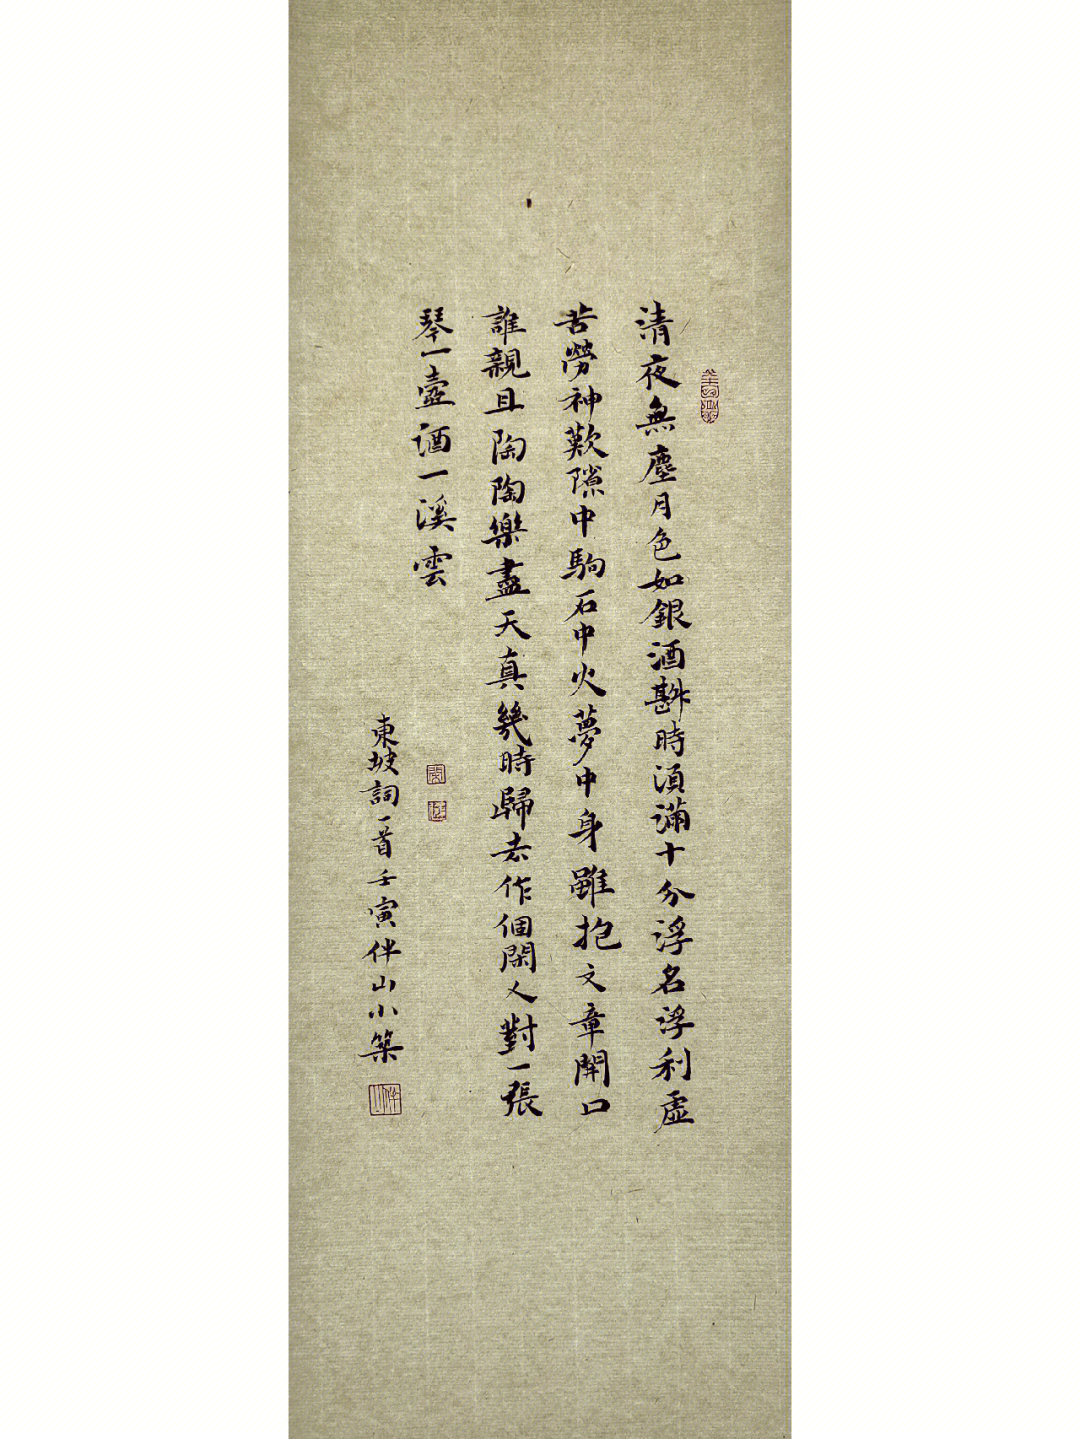 清夜無塵月色如銀酒斟時須滿十分浮名浮利虛
苦勞神歎隙中駒石中火夢中身雖抱文章開口
誰親且陶陶樂盡天真幾時歸去作個閑人對一張
琴一壺酒一溪雲
東坡詞一首壬寅伴山小築